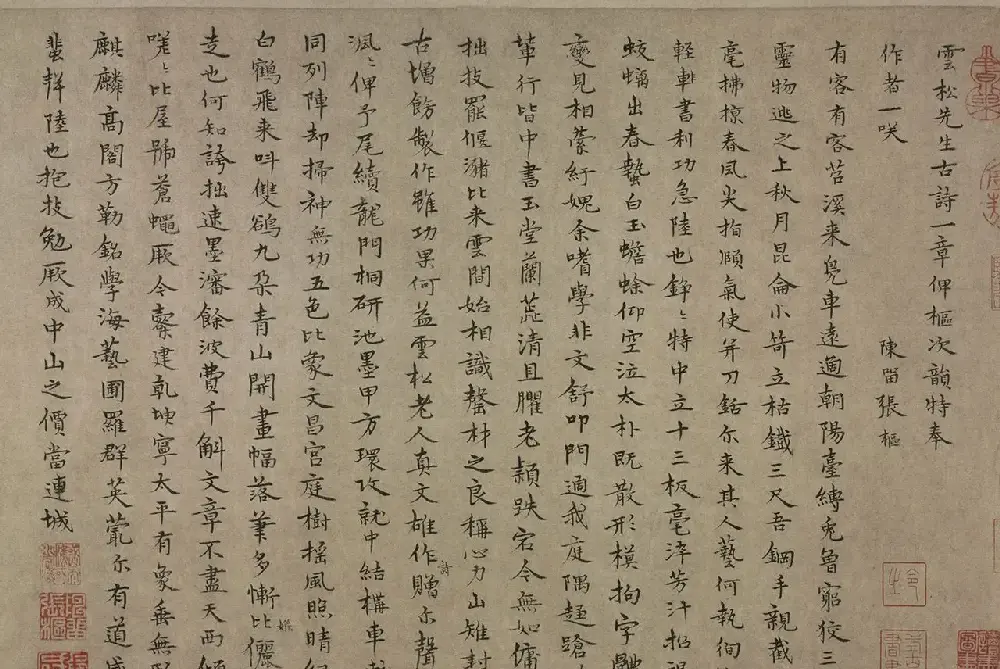 雲松先生古詩一章俾樞次韻特奉
作者一咲
陳畱張樞
有客有客苕溪來鳧車遠適朝陽臺縛兎魯窮狡三
靈物逃之上秋月昆侖小笴立枯鐵三尺吾鋼手親截
毫拂掠春風尖指頎氣使并刀銛尔来其人藝何執徇
輕車書利功急陸也錚〻特中立十三板毫淬芳汁招
蛟蟠出春蟄白玉蟾蜍仰空泣太朴既散形模拘字
變見相縈紆媿余嗜學非文舒叩門適我庭隅趨蹌
葷行皆中書玉堂蘭茝清且臞老穎跌宕今無如傭
拙技罷偃瀦比来雲間始相識罄材之良稱心力山雉封
古增飭製作雖功果何益雲松老人真文雄作贈詩尓聲
渢〻俾予尾續龍門桐研池墨甲方環攻就中結構車
同列陣却掃神無功五色比象文昌宮庭樹榣風照晴
白鶴飛来呌雙鵒九朶青山開畫幅落筆多慚比儷
走也何知誇拙速墨瀋餘波費千斛文章不盡天西
嘆〻比屋號蒼蠅厥今橐建乹坤寧太平有象垂無
麒麟髙閣方勒銘學海藝圃羅群英薨尓有道
蜚群陸也抱技勉厥成中山之價當連城